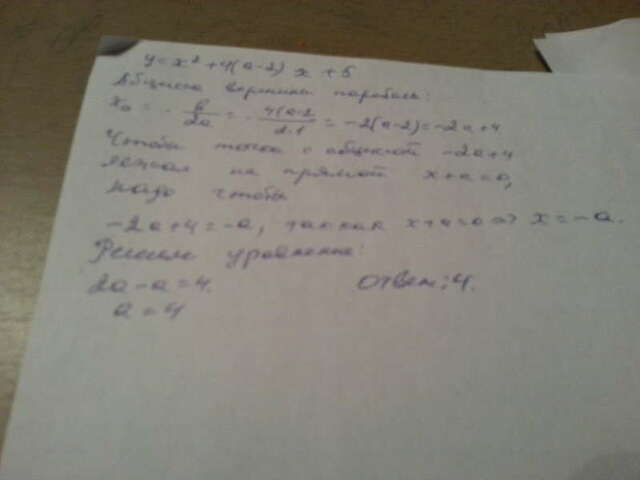 y = x² + 4(a-2) x + 5
Абцисса вершины параболы:
x₀ = - b/2a = - 4(a-2/2·1 = -2(a-2) = -2a+4
Чтобы точка с абциссой -2a+4
лежала на прямой x+a=0,
надо чтобы
-2a+4 = -a, так как x+a=0 => x = -a.
Решим уравнение:
2a-a=4. Ответ: 4.
a = 4